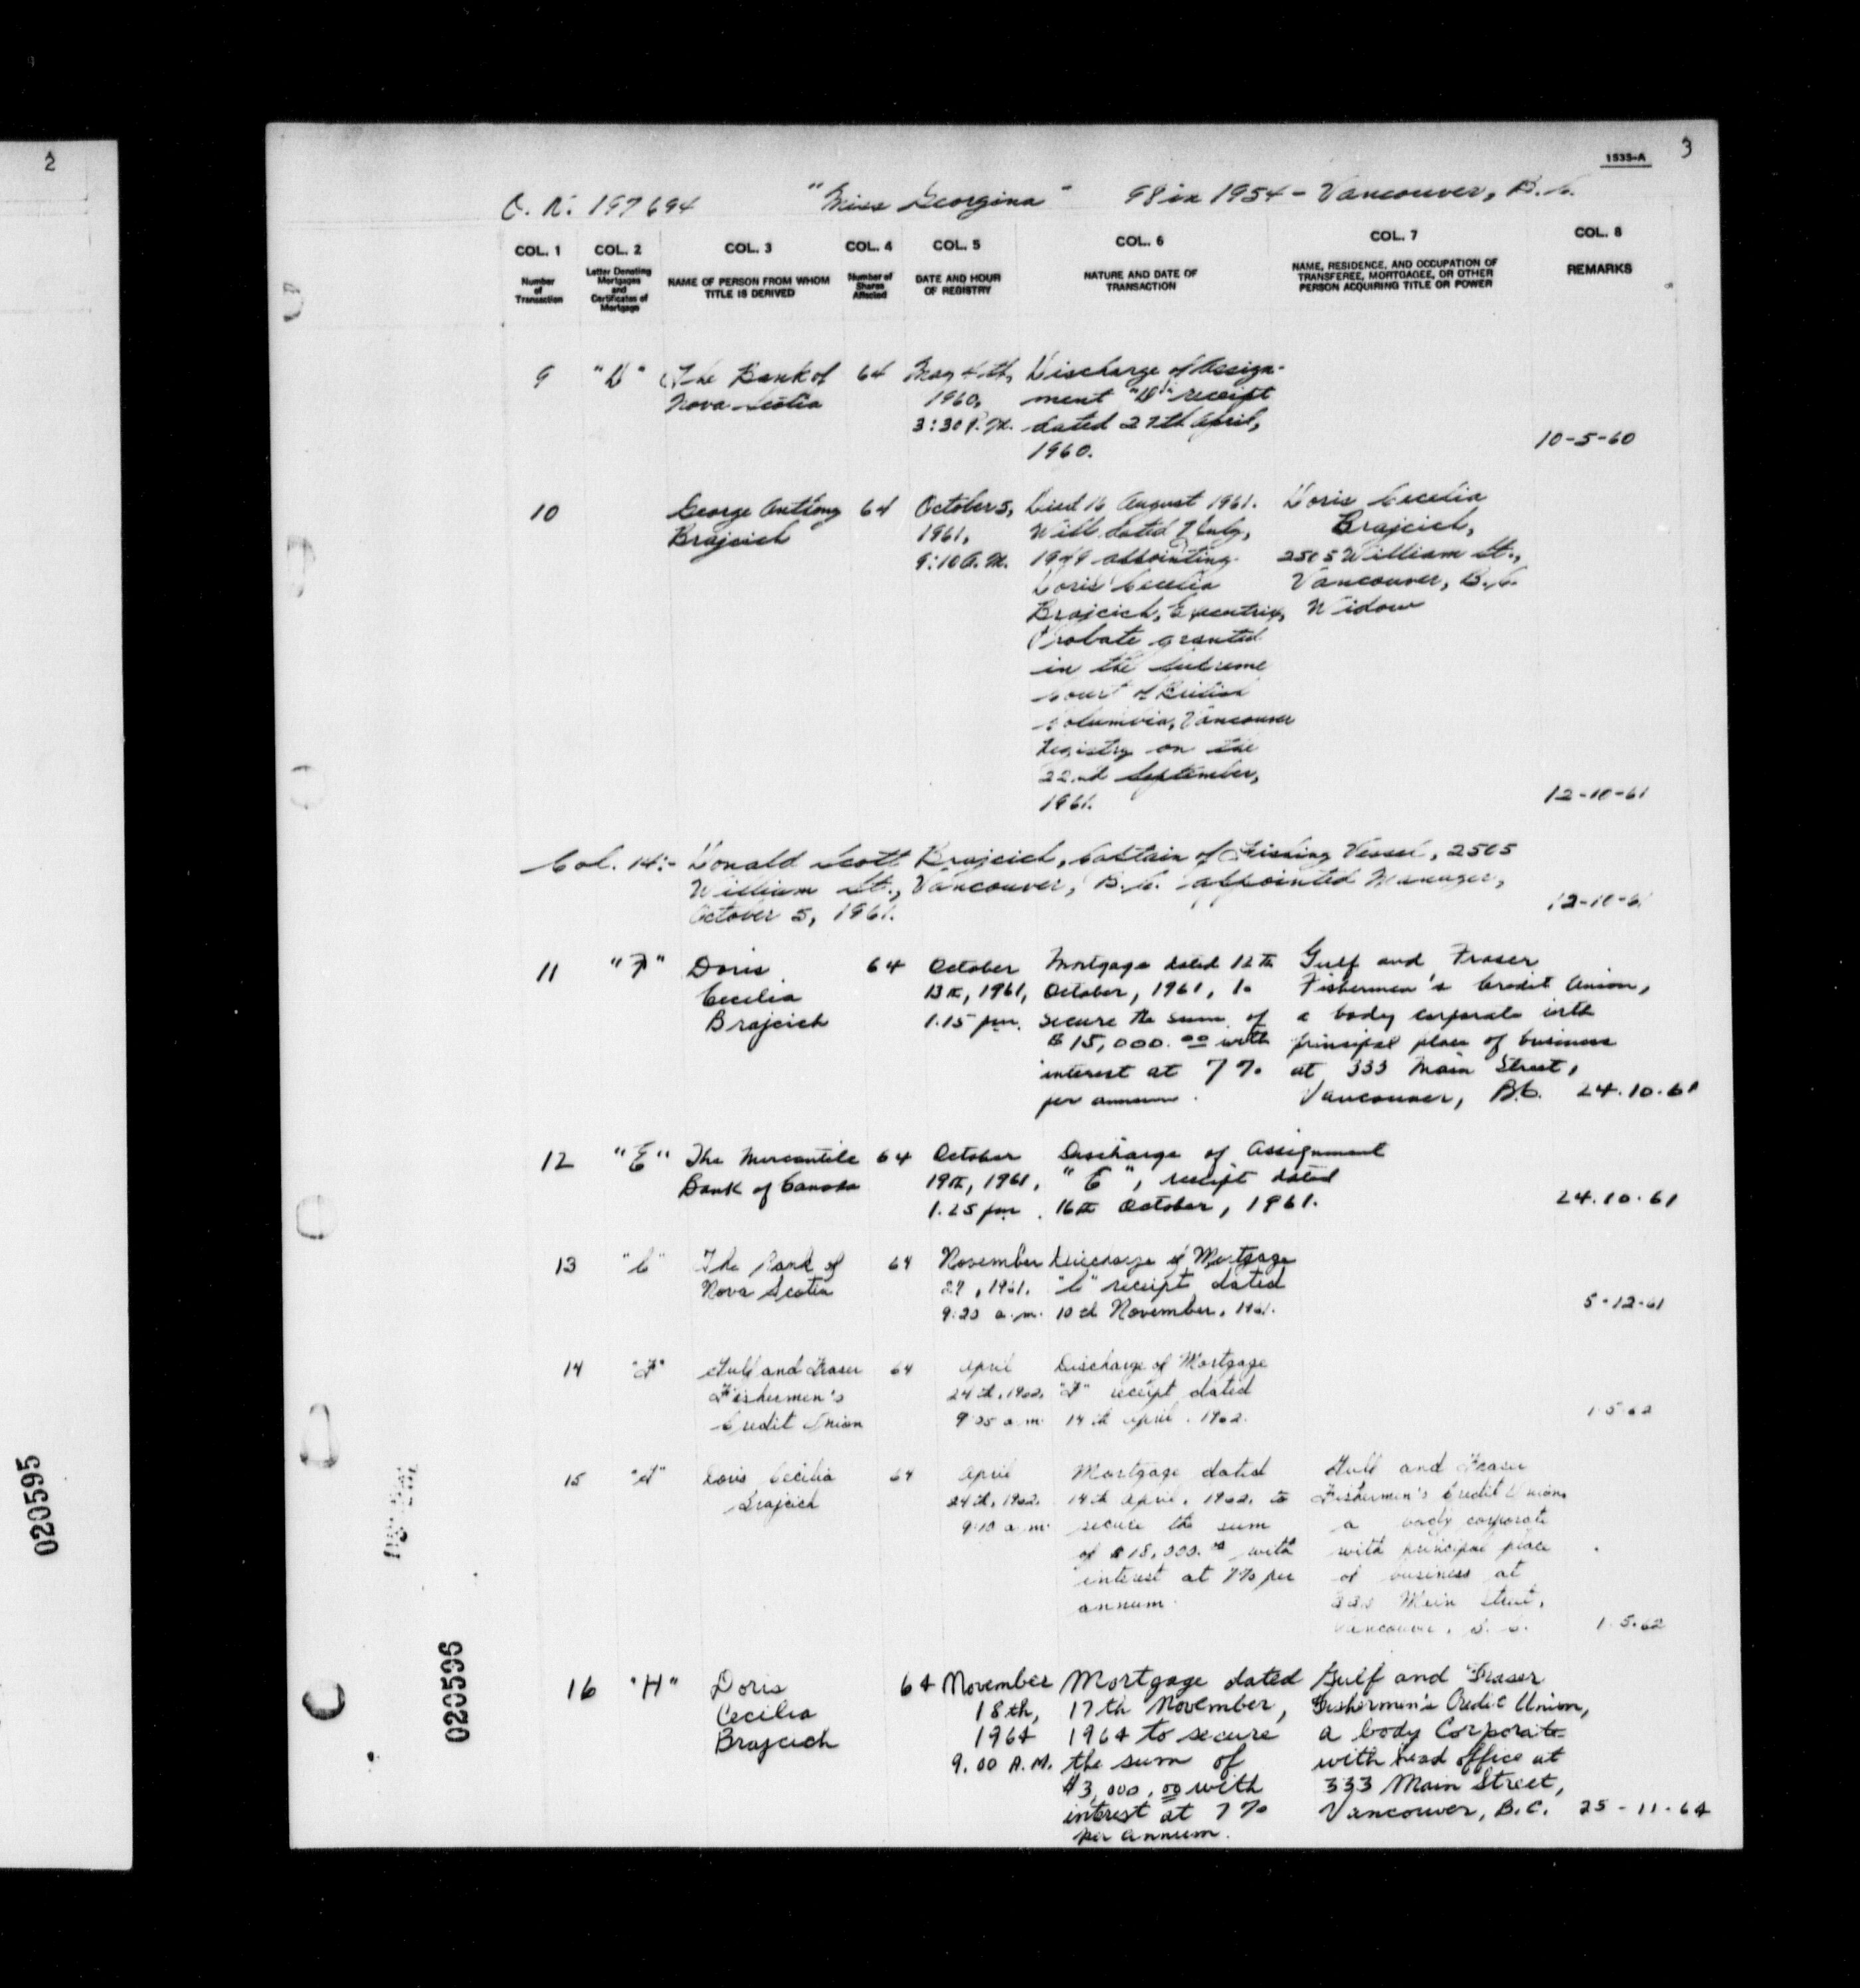 2
1535-A 3
O. N. 197694 "Miss Georgina" 98 in 1954 - Vancouver, B.C.
COL. 1 COL. 2 COL. 3 COL. 4 COL. 5 COL. 6 COL. 7 COL. 8
Number of Transaction
Letter Denoting Mortgages and Certificates of Mortgage
NAME OF PERSON FROM WHOM TITLE IS DERIVED
Number of Shares Affected
DATE AND HOUR OF REGISTRY
NATURE AND DATE OF TRANSACTION
NAME, RESIDENCE, AND OCCUPATION OF TRANSFEREE, MORTGAGEE, OR OTHER PERSON ACQUIRING TITLE OR POWER
REMARKS
9 "D" The Bank of 64 May 4th, Discharge of Assign-
Nova Scotia 1960, ment "D" receipt
3:30 P.M. dated 27th April,
1960. 10-5-60
10 George Anthony 64 October 5, Died 16 August 1961. Doris Cecelia
Brajcich 1961, Will dated 7 July, Brajcich,
9:10 A.M. appointing 2505 William St.,
Doris Cecelia Vancouver, B.C.
Brajcich, Executrix, Widow
Probate granted
in the Supreme
Court of British
Columbia, Vancouver
Registry on the
22nd September,
1961. 12-10-61
Col. 14:- Donald Scott Brajcich, Captain of Fishing Vessel, 2505
William St., Vancouver, B.C. appointed Manager,
October 5, 1961. 12-10-61
11 "F" Doris 64 October Mortgage dated 12th Gulf and Fraser
Cecilia 13th, 1961, October, 1961, to Fishermen's Credit Union,
Brajcich 1.15 pm. secure the sum of a body corporate with
$15,000.00 with principal place of business
interest at 7% at 333 Main Street,
per annum. Vancouver, B.C. 24.10.61
12 "E" The Mercantile 64 October Discharge of Assignment
Bank of Canada 19th, 1961, "E", receipt dated
1.25 pm. 16th October, 1961. 24.10.61
13 "C" The Bank of 64 November Discharge of Mortgage
Nova Scotia 29, 1961. "C" receipt dated
9:20 a.m. 10th November, 1961. 5-12-61
14 "F" Gulf and Fraser 64 April Discharge of Mortgage
Fishermen's 24th, 1962. "F" receipt dated
Credit Union 9:05 a.m. 14th April, 1962. 1.5.62
15 "G" Doris Cecilia 64 April Mortgage dated Gulf and Fraser
Brajcich 24th, 1962. 14th April, 1962, to Fishermen's Credit Union,
9:10 a.m. secure the sum a body corporate
of $18,000.00 with with principal place
interest at 7% per of business at
annum. 333 Main Street,
Vancouver, B.C. 1.5.62
16 "H" Doris 64 November Mortgage dated Gulf and Fraser
Cecilia 18th, 17th November, Fishermen's Credit Union,
Brajcich 1964 1964 to secure a body Corporate
9.00 A.M. the sum of with head office at
$3,000.00 with 333 Main Street,
interest at 7% Vancouver, B.C. 25-11-64
per annum.
020595
020596